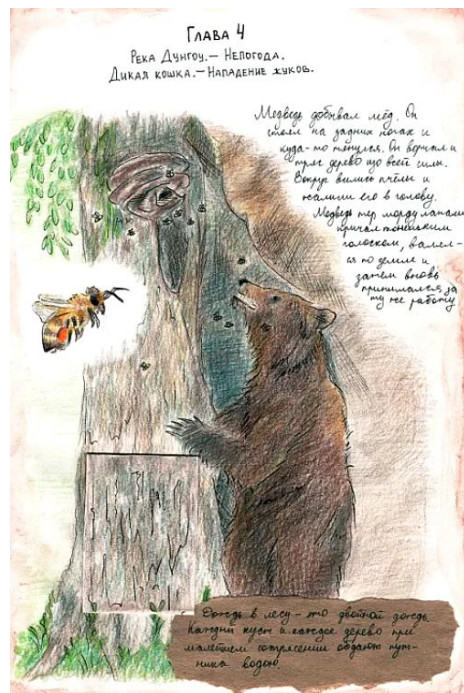 Глава 4
Река Дунгоу.— Непогода.
Дикая кошка.— Нападение жуков.
Медведь добывал мёд. Он
стоял на задних ногах и
куда-то тянулся. Он ворчал и
тряс дерево изо всей силы.
Вокруг вились пчёлы и
жалили его в голову.
Медведь тер морду лапами
кричал тоненьким
голоском, валял-
ся по земле и
затем вновь
принимался за
ту же работу
Дождь в лесу – это двойной дождь
Каждый куст и каждое дерево при
малейшем сотрясении обдают пут-
ника водою.